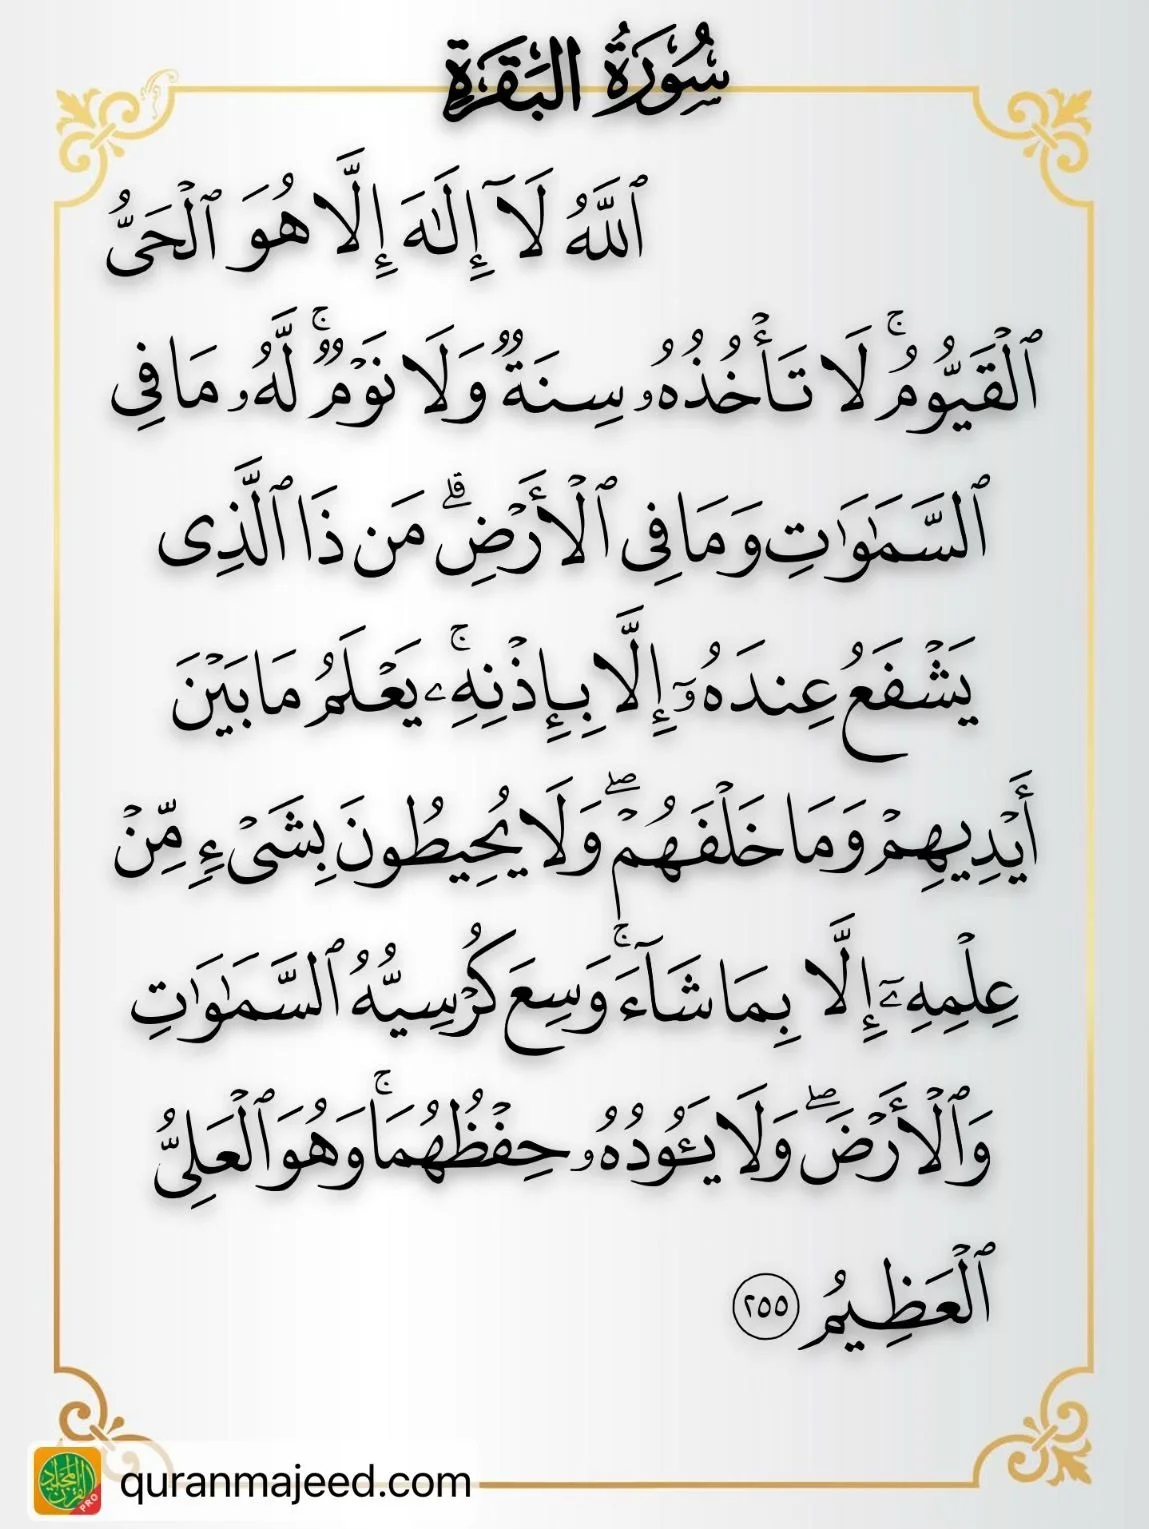 سُورَةُ البَقَرَةِ
ٱللَّهُ لَآ إِلَٰهَ إِلَّا هُوَ ٱلْحَىُّ
ٱلْقَيُّومُ ۚ لَا تَأْخُذُهُۥ سِنَةٌ وَلَا نَوْمٌ ۚ لَّهُۥ مَا فِى
ٱلسَّمَٰوَٰتِ وَمَا فِى ٱلْأَرْضِ ۗ مَن ذَا ٱلَّذِى
يَشْفَعُ عِندَهُۥٓ إِلَّا بِإِذْنِهِۦ ۚ يَعْلَمُ مَا بَيْنَ
أَيْدِيهِمْ وَمَا خَلْفَهُمْ ۖ وَلَا يُحِيطُونَ بِشَىْءٍ مِّنْ
عِلْمِهِۦٓ إِلَّا بِمَا شَآءَ ۚ وَسِعَ كُرْسِيُّهُ ٱلسَّمَٰوَٰتِ
وَٱلْأَرْضَ ۖ وَلَا يَـُٔودُهُۥ حِفْظُهُمَا ۚ وَهُوَ ٱلْعَلِىُّ
ٱلْعَظِيمُ ٢٥٥
القرآن المجيد
PRO
quranmajeed.com